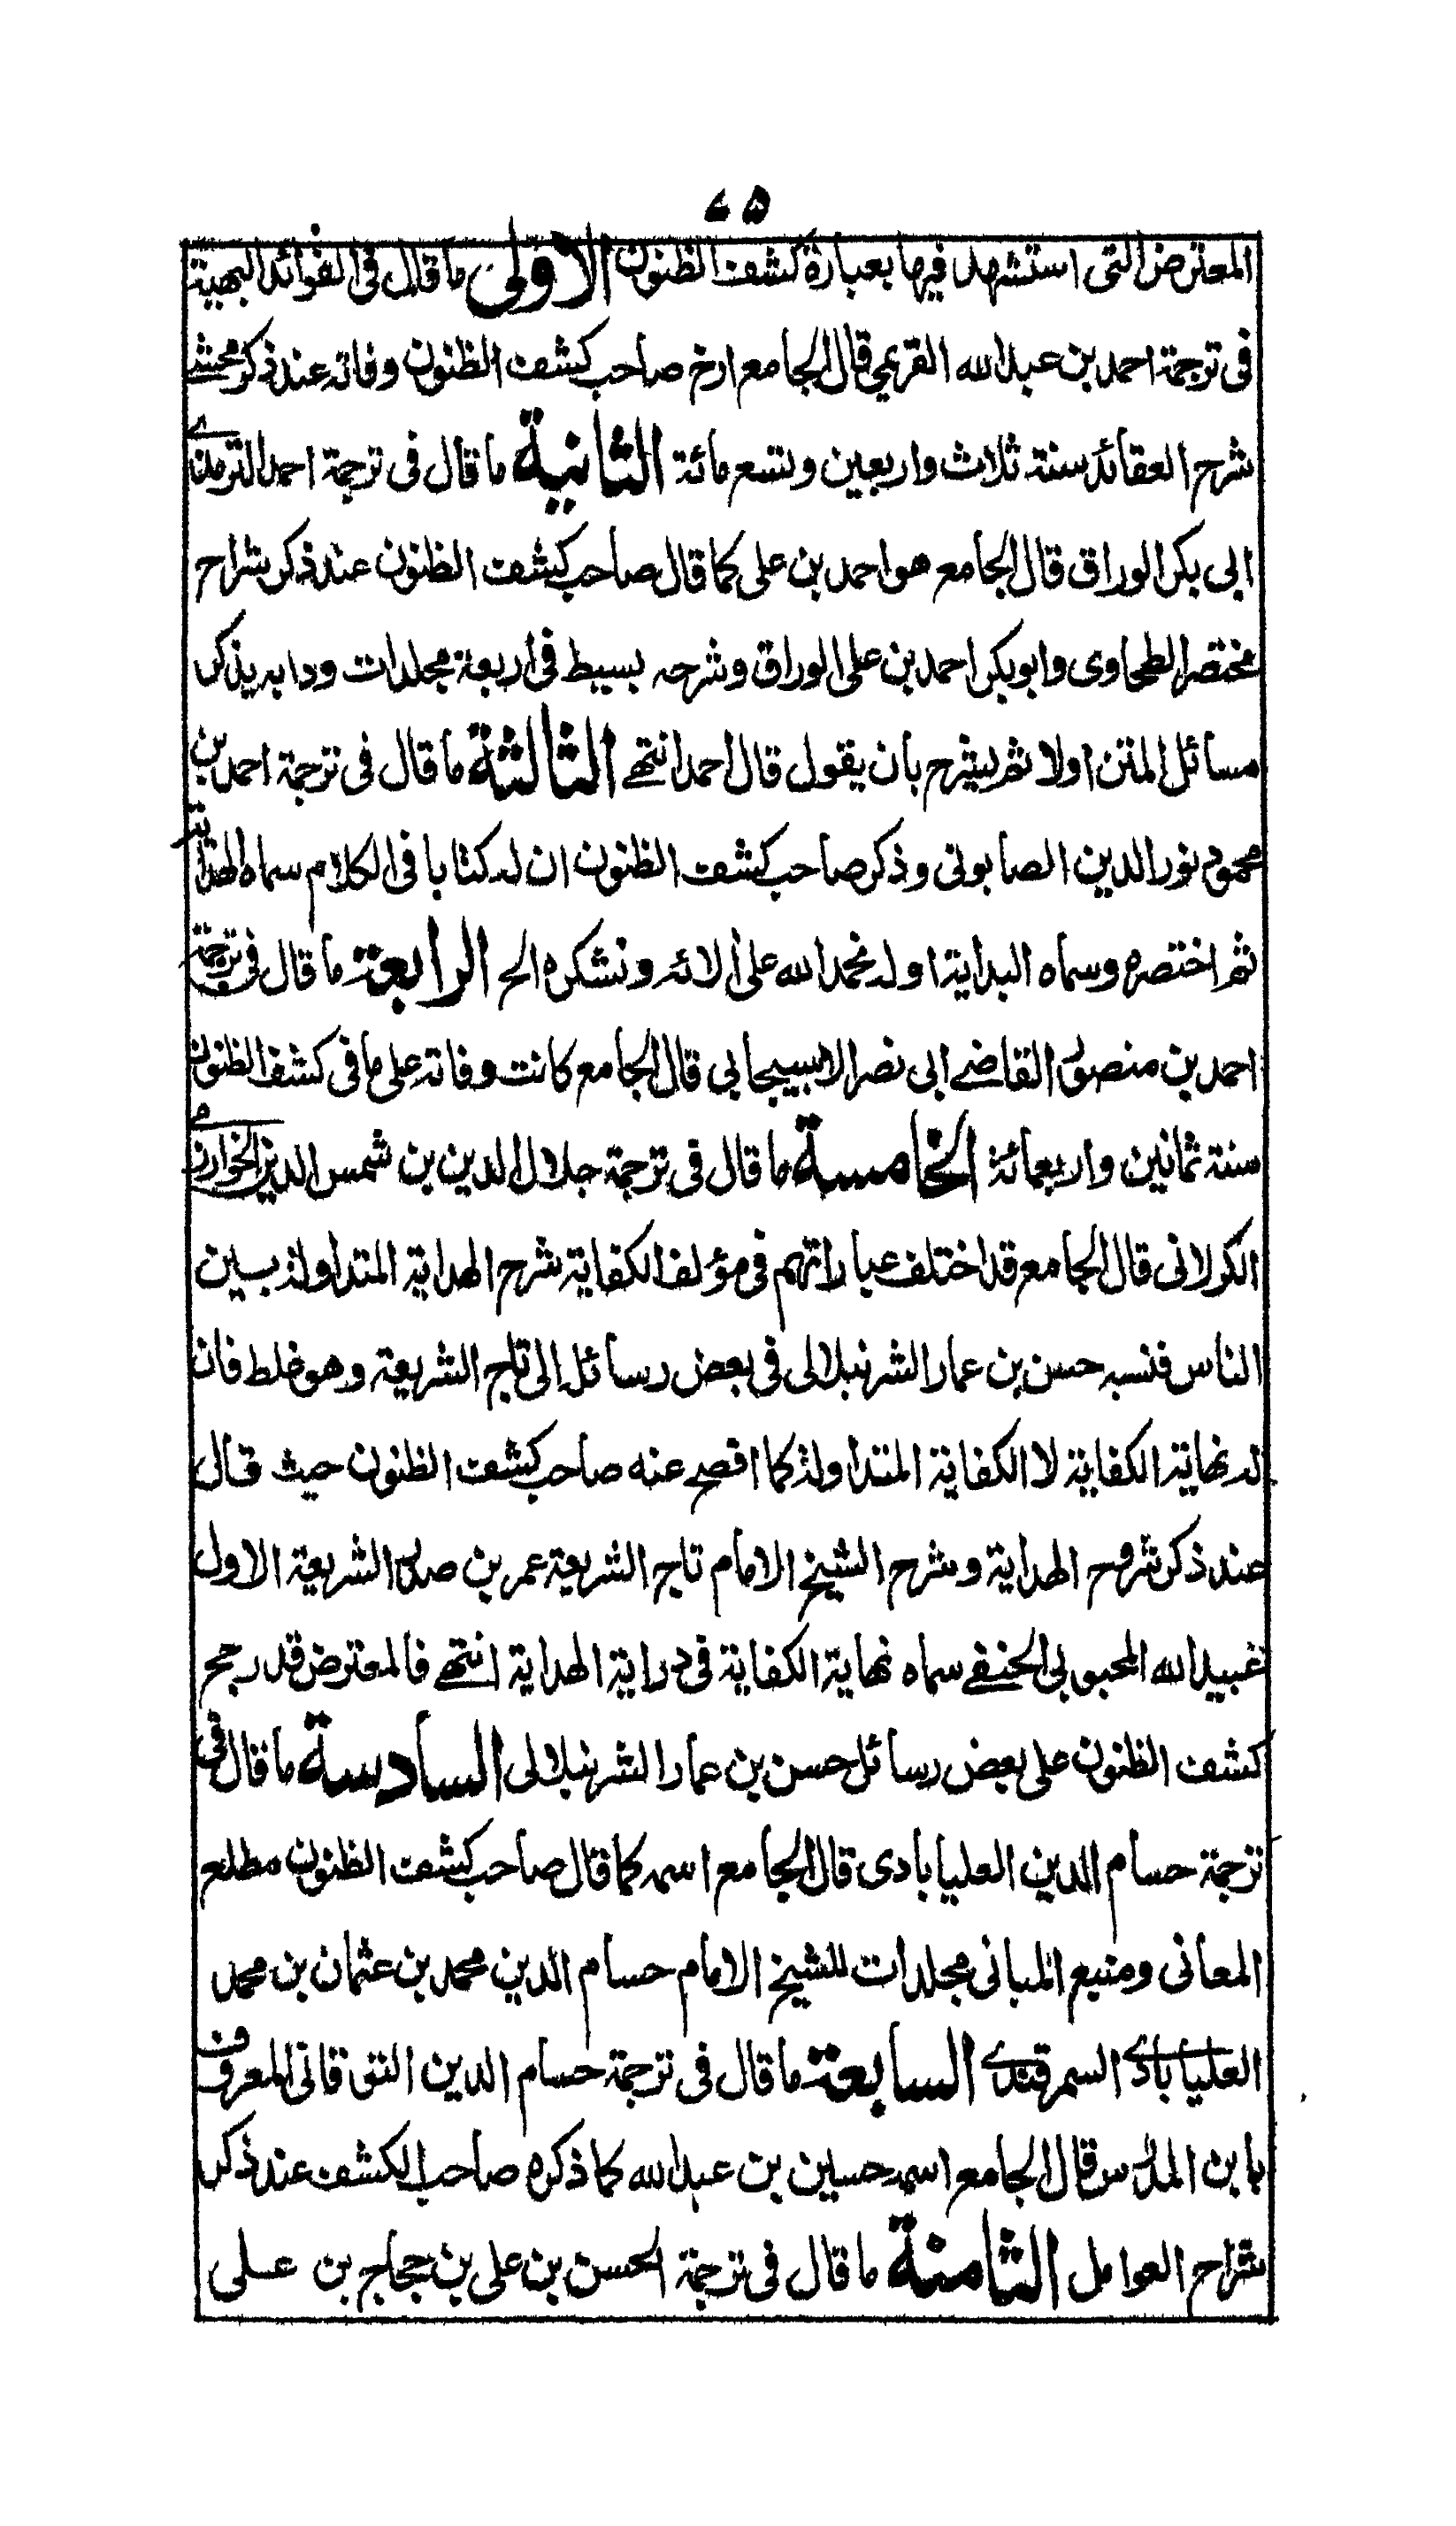 ۷۵
المعترض التی استشهد فیها بعبارة کشف الظنون الاولی ما قال فی الفوائد البهیة
فی ترجمة احمد بن عبد الله القریمی قال الجامع ارخ صاحب کشف الظنون وفاته عند ذکر محشے
شرح العقائد سنة ثلاث واربعین وتسع مائة الثانیة ما قال فی ترجمة احمد الترمذے
ابی بکر الوراق قال الجامع هو احمد بن علی کما قال صاحب کشف الظنون عند ذکر شراح
مختصر الطحاوی وابو بکر احمد بن علی الوراق وشرحه بسیط فی اربعة مجلدات ودابه یذکر
مسائل المتن اولا ثم یشرح بان یقول قال احمد انتهے الثالثة ما قال فی ترجمة احمد بن
محمود نور الدین الصابونی وذکر صاحب کشف الظنون ان له کتابا فی الکلام سماه الهدایة
ثم اختصره وسماه البدایة اوله نحمد الله علی الائه ونشکره الخ الرابعة ما قال فی ترجمة
احمد بن منصور القاضے ابی نصر الاسبیجابی قال الجامع کانت وفاته علی ما فی کشف الظنون
سنة ثمانین واربعمائة الخامسة ما قال فی ترجمة جلال الدین بن شمس الدین الخوارزمی
الکرلانی قال الجامع قد اختلف عباراتهم فی مؤلف الکفایة شرح الهدایة المتداولة بین
الناس فنسبه حسن بن عمار الشرنبلالی فی بعض رسائله الی تاج الشریعة وهو غلط فان
له نهایة الکفایة لا الکفایة المتداولة کما افصح عنه صاحب کشف الظنون حیث قال
عند ذکر شروح الهدایة وشرح الشیخ الامام تاج الشریعة عمر بن صدر الشریعة الاول
عبید الله المحبوبی الحنفے سماه نهایة الکفایة فی درایة الهدایة انتهے فالمعترض قد رجح
کشف الظنون علی بعض رسائل حسن بن عمار الشرنبلالی السادسة ما قال فی
ترجمة حسام الدین العلیابادی قال الجامع اسمه کما قال صاحب کشف الظنون مطلع
المعانی ومنبع المبانی مجلدات للشیخ الامام حسام الدین محمد بن عثمان بن محمد
العلیابادے السمرقندے السابعة ما قال فی ترجمة حسام الدین التوقاتی المعروف
بابن المدرس قال الجامع اسمه حسین بن عبد الله کما ذکره صاحب الکشف عند ذکر
شراح العوامل الثامنة ما قال فی ترجمة الحسن بن علی بن حجاج بن علی